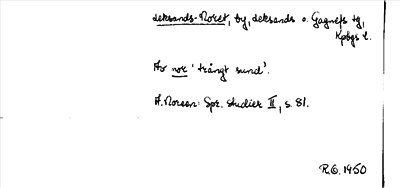 Leksands-Noret, by, Leksands o. Gagnefs tg,
Kpbgs l.
Av nor 'trångt sund'.
A. Noreen: Spr. studier II, s. 81.
R.O. 1950